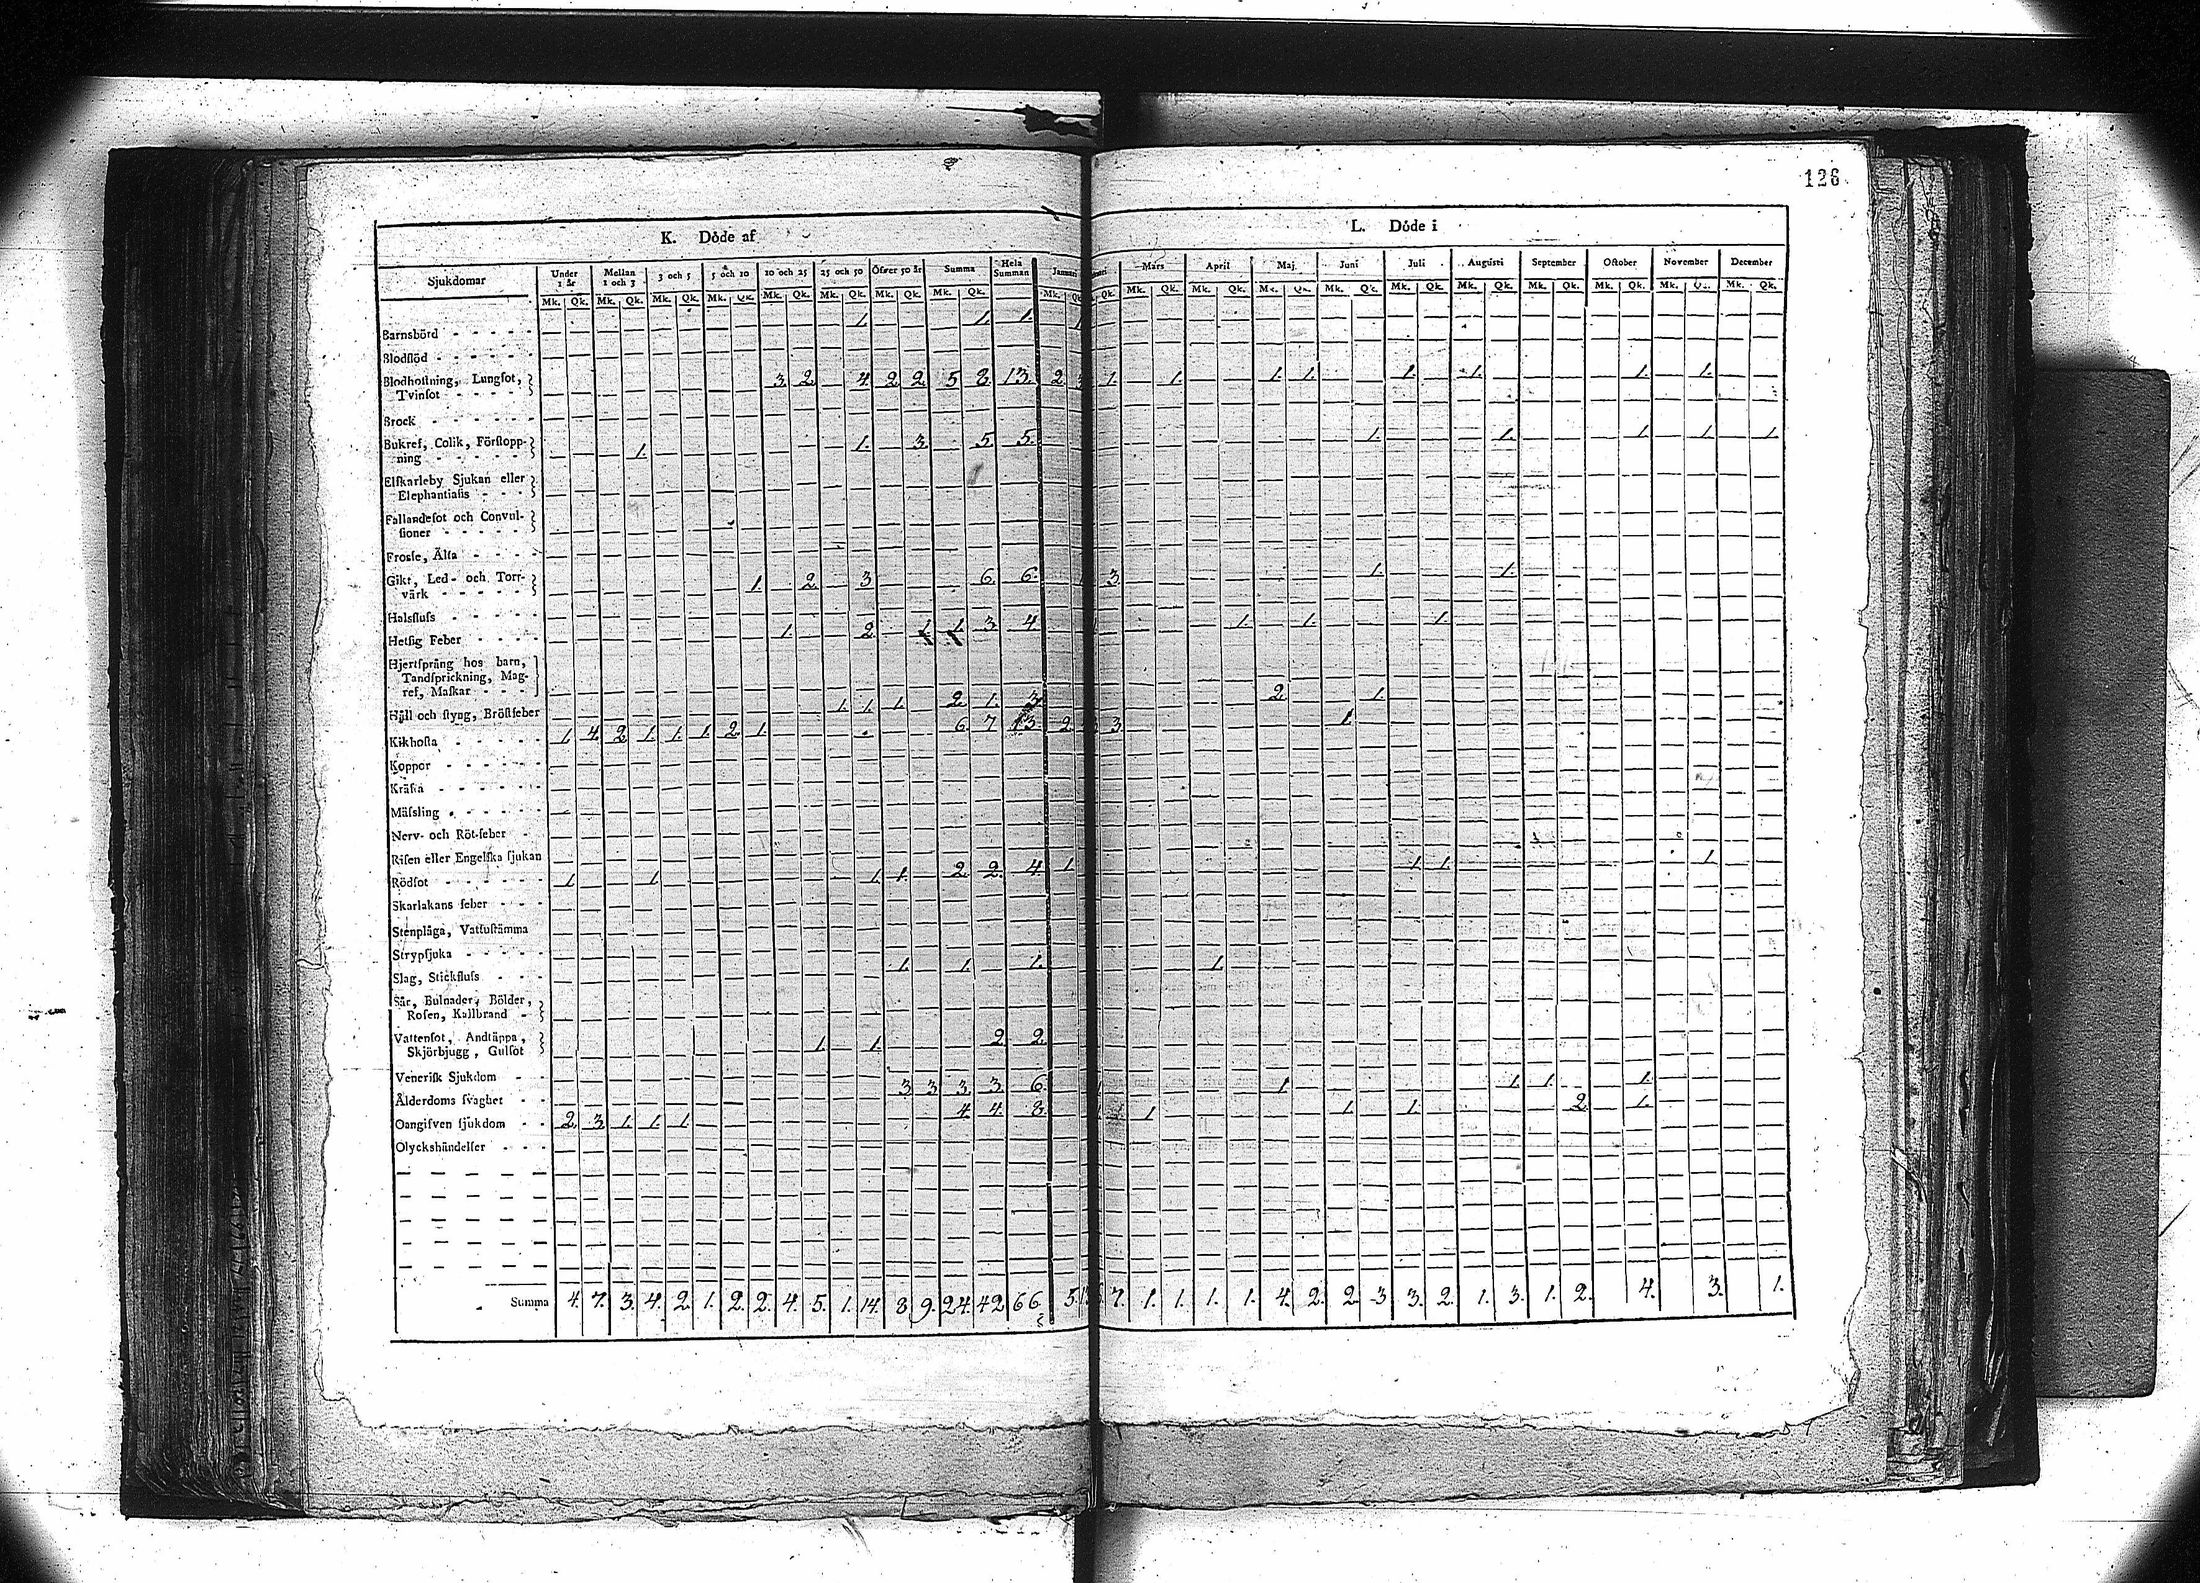 126
K. Döde af
L. Döde i
Sjukdomar Under 1 år Mellan 1 och 3 3 och 5 5 och 10 10 och 25 25 och 50 Öfver 50 år Summa Hela Summan Januari Mars April Maj Juni Juli Augusti September Oktober November December
Mk. Qk. Mk. Qk. Mk. Qk. Mk. Qk. Mk. Qk. Mk. Qk. Mk. Qk. Mk. Qk. Mk. Qk. Mk. Qk. Mk. Qk. Mk. Qk. Mk. Qk. Mk. Qk. Mk. Qk. Mk. Qk. Mk. Qk. Mk. Qk. Mk. Qk.
Barnsbörd - - - - - 1. 1. 1.
Blodflöd - - - - - -
Blodhoſtning, Lungſot, 3. 2. 4. 2. 2. 5. 8. 13. 2. 1. 1. 1. 1. 1. 1. 1. 1.
Tvinſot - - - - -
Brock - - - - - -
Bukref, Colik, Förſtopp- 1. 1. 3. 5. 5. 1. 1. 1. 1. 1.
ning - - - - - -
Elſkarleby Sjukan eller
Elephantiaſis - - -
Fallandeſot och Convul-
ſioner - - - - -
Frosſe, Älta - - - -
Gikt, Led- och Torr- 1. 2. 3. 6. 6. 3. 1. 1.
värk - - - - -
Halsfluſs - - - - -
Hetſig Feber - - - - 1. 2. 1. 1. 3. 4. 1. 1. 1.
Hjertſprång hos barn,
Tandſprickning, Mag-
ref, Maſkar - - -
Håll och ſtyng, Bröſtfeber 1. 1. 1. 2. 1. 3. 2. 1.
Kikhoſta - - - - - 1. 4. 2. 1. 1. 1. 2. 1. 6. 7. 13. 2. 3. 1.
Koppor - - - - -
Kräfta - - - - -
Mäſsling - - - - -
Nerv- och Röt-feber -
Riſen eller Engelſka ſjukan
Rödſot - - - - - 1. 1. 1. 1. 2. 2. 4. 1. 1. 1. 1.
Skarlakans feber - - -
Stenplåga, Vattuſtämma
Strypſjuka - - - - -
Slag, Stickfluſs - - - 1. 1. 1. 1.
Sår, Bulnader, Bölder,
Roſen, Kallbrand -
Vattenſot, Andtäppa, 1. 1. 2. 2.
Skjörbjugg, Gulſot
Veneriſk Sjukdom - -
Ålderdoms ſvaghet - - 3. 3. 3. 3. 6. 1. 1. 1. 1.
Oangifven ſjukdom - - 2. 3. 1. 1. 1. 4. 4. 8. 1. 1. 1. 2. 1.
Olyckshändelſer - - -
Summa 4. 7. 3. 4. 2. 1. 2. 2. 4. 5. 1. 14. 8. 9. 24. 42 66. 5. 7. 1. 1. 1. 1. 4. 2. 2. 3 3. 2. 1. 3. 1. 2. 4. 3. 1.